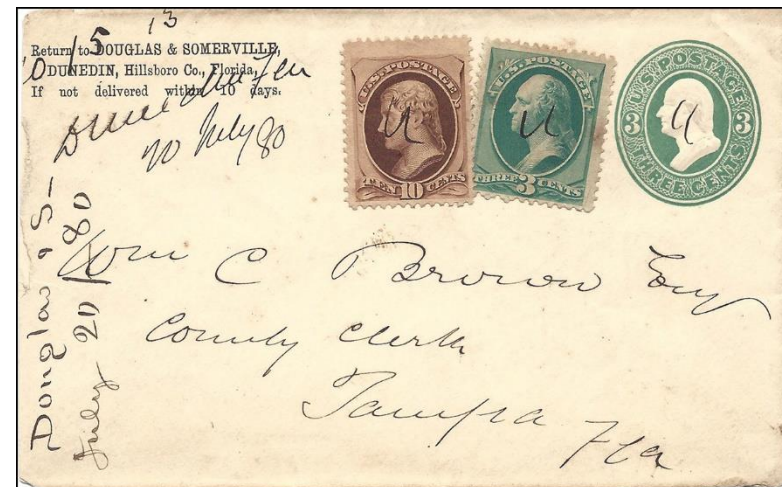 13
15
Return to DOUGLAS & SOMERVILLE,
DUNEDIN, Hillsboro Co., Florida,
If not delivered within 10 days.
Dunedin Fla
20 July 80
U.S. POSTAGE
TEN 10 CENTS
U.S. POSTAGE
THREE 3 CENTS
U.S. POSTAGE
3 3
THREE CENTS
Wm C Brown Esq
County Clerk
Tampa
Fla
Douglas & S-
July 20/80